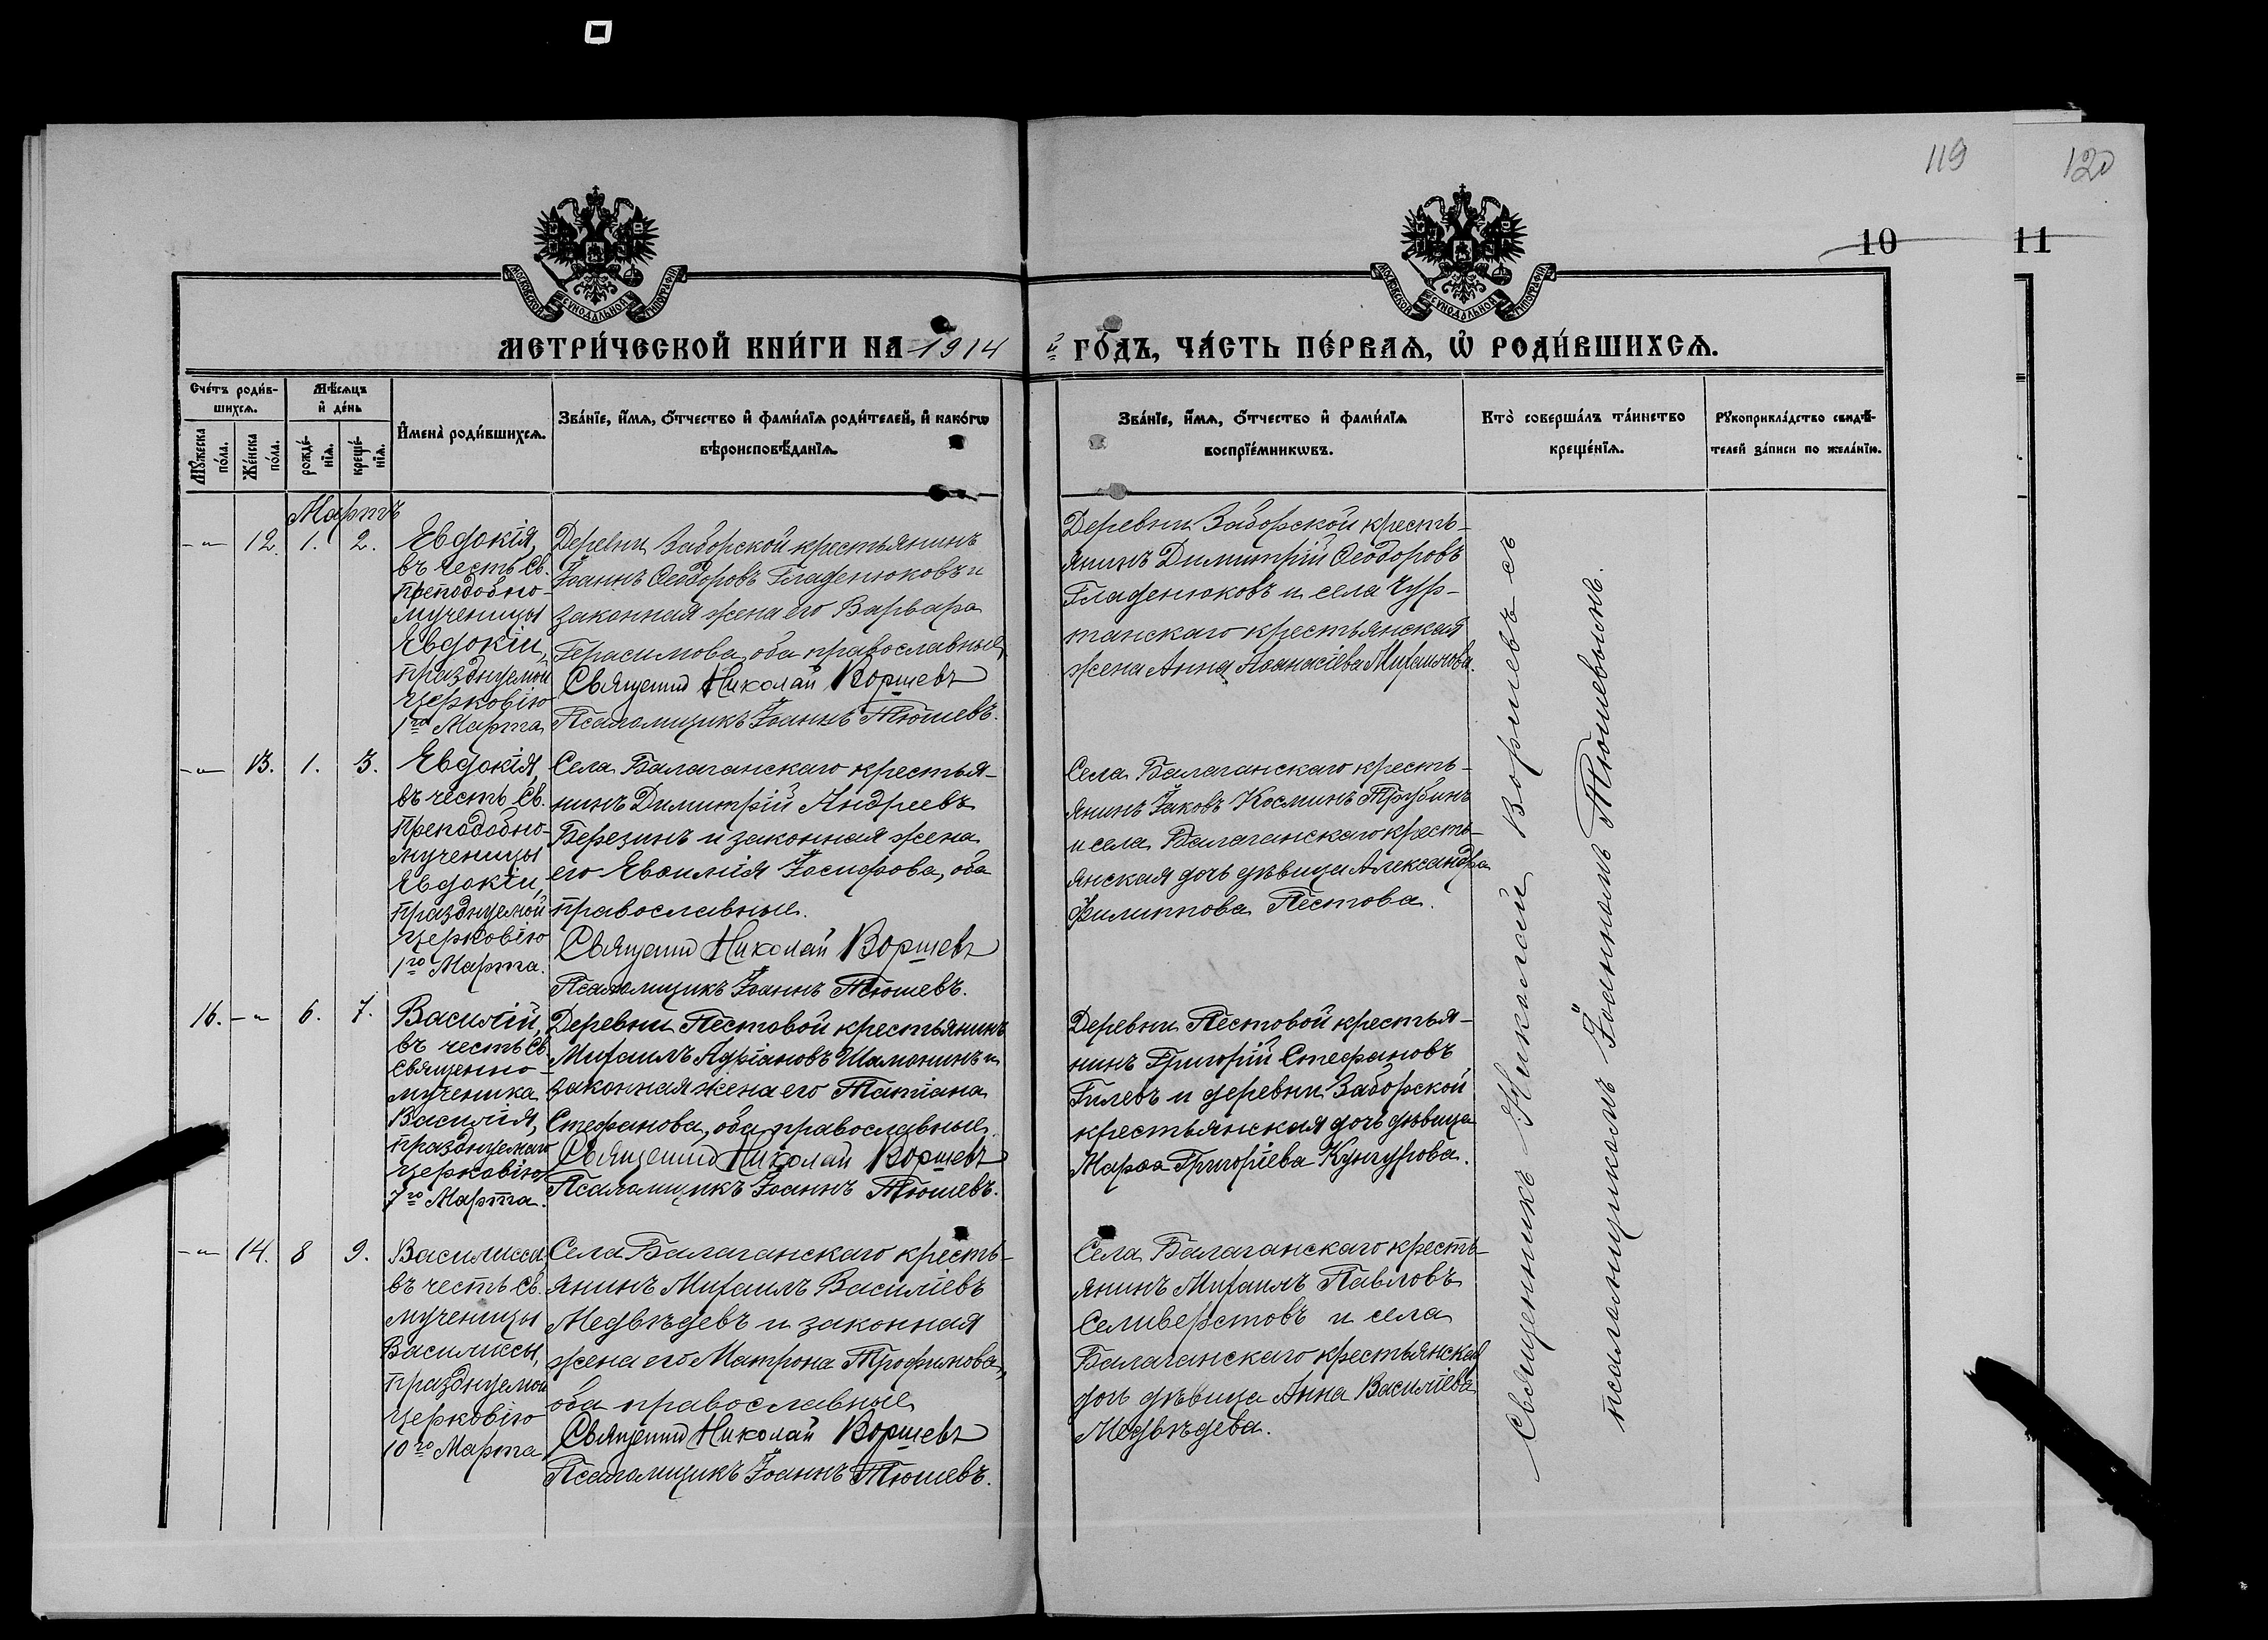 119
120
10
11
МОСКОВСКОЙ СУНОДАЛЬНОЙ ТИПОГРАФІИ
МОСКОВСКОЙ СУНОДАЛЬНОЙ ТИПОГРАФІИ
МЕТРИ́ЧЕСКОЙ КНИ́ГИ НА 1914
й ГО́ДЪ, ЧА́СТЬ ПЕ́РВАѦ, Ѡ҆ РОДИ́ВШИХСѦ.
Сче́тъ роди́в-
шихсѧ.
Мꙋ́жеска
по́ла.
Же́нска
по́ла.
Мѣ́сѧцъ
и҆ де́нь
рожде́-
нїѧ.
креще́-
нїѧ.
И҆мена̀ роди́вшихсѧ.
Зва́нїе, и҆́мѧ, ѻ҆́тчество и҆ фами́лїѧ роди́телей, и҆ како́гѡ
вѣроисповѣ́данїѧ.
Зва́нїе, и҆́мѧ, ѻ҆́тчество и҆ фами́лїѧ
воспрїе́мникѡвъ.
Кто̀ соверша́лъ та́инство
креще́нїѧ.
Рꙋкоприкла́дство свидѣ́-
телей за́писи по жела́нїю.
Мартъ
-„- 12. 1. 2.
Евдокія,
въ честь Св.
преподобно-
мученицы
Евдокіи,
празднуемой
церковію
1го Марта
Деревни Заборской крестьянинъ
Іоаннъ Ѳеодоровъ Гладенюковъ и
законная жена его Варвара
Герасимова, оба православные
Священник Николай Воршевъ
Псаломщикъ Іоаннъ Тюшевъ.
Деревни Заборской кресть-
янинъ Димитрій Ѳеодоровъ
Гладенюковъ и села Чур-
танскаго крестьянская
жена Анна Аѳанасіева Михаилова.
-„- 13. 1. 3.
Евдокія,
въ честь Св.
Преподобно-
мученицы
Евдокіи,
празднуемой
церковію
1го Марта.
Села Балаганскаго крестья-
нинъ Димитрій Андреевъ
Березинъ и законная жена
его Евѳимія Іосифова, оба
православные.
Священник Николай Воршевъ
Псаломщикъ Іоаннъ Тюшевъ.
Села Балаганскаго кресть-
янинъ Іаковъ Косминъ Трубинъ
и села Балаганскаго кресть-
янская дочь дѣвица Александра
Филиппова Пестова.
16. -„ 6. 7.
Василій,
въ честь Св.
Священно-
мученика
Василія,
празднуемаго
церковію
7го Марта.
Деревни Пестовой крестьянинъ
Михаилъ Адріановъ Шамонинъ и
законная жена его Татіана
Стефанова, оба православные.
Священник Николай Воршевъ
Псаломщикъ Іоаннъ Тюшевъ.
Деревни Пестовой крестья-
нинъ Григорій Стефановъ
Гилевъ и деревни Заборской
крестьянская дочь дѣвица
Марѳа Григоріева Кунгурова.
-„- 14. 8 9.
Василисса
въ честь Св.
мученицы
Василиссы,
празднуемой
церковію
10го Марта
Села Балаганскаго кресть-
янинъ Михаилъ Василіевъ
Медвѣдевъ и законная
жена его Матрона Трофимова,
оба православные
Священник Николай Воршевъ
Псаломщикъ Іоаннъ Тюшевъ.
Села Балаганскаго кресть-
янинъ Михаилъ Павловъ
Селиверстовъ и села
Балаганскаго крестьянская
дочь дѣвица Анна Василіева
Медвѣдева.
Священникъ Николай Воршевъ съ
псаломщикомъ Іоанномъ Тюшевымъ.